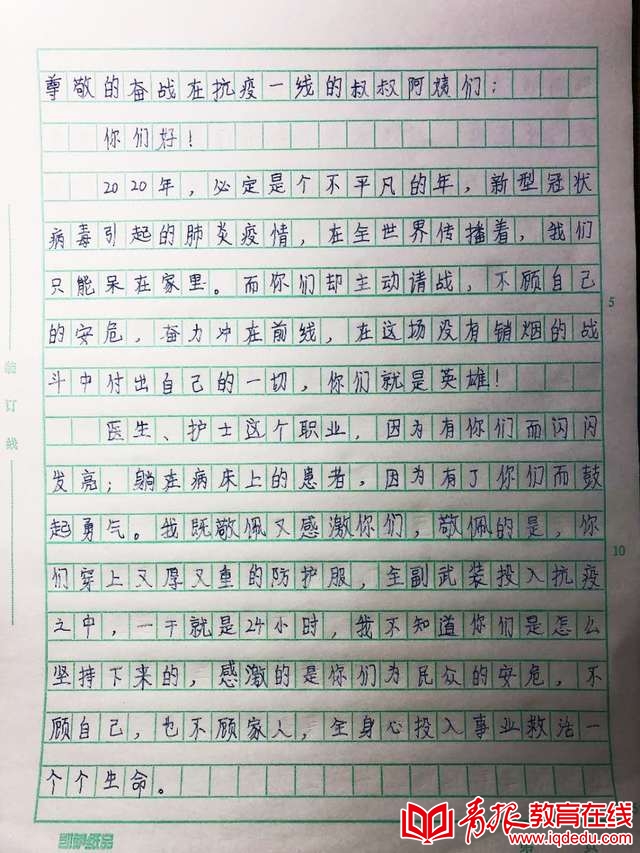 尊敬的奋战在抗疫一线的叔叔阿姨们：
你们好！
2020年，必定是个不平凡的年，新型冠状
病毒引起的肺炎疫情，在全世界传播着，我们
只能呆在家里。而你们却主动请战，不顾自己
的安危，奋力冲在前线，在这场没有销烟的战
斗中付出自己的一切，你们就是英雄！
医生、护士这个职业，因为有你们而闪闪
发亮；躺在病床上的患者，因为有了你们而鼓
起勇气。我既敬佩又感激你们，敬佩的是，你
们穿上又厚又重的防护服，全副武装投入抗疫
之中，一干就是24小时，我不知道你们是怎么
坚持下来的，感激的是你们为民众的安危，不
顾自己，也不顾家人，全身心投入事业救活一
个个生命。
5
10
装订线
凯萨纸品
青报教育在线
www.iqdedu.com